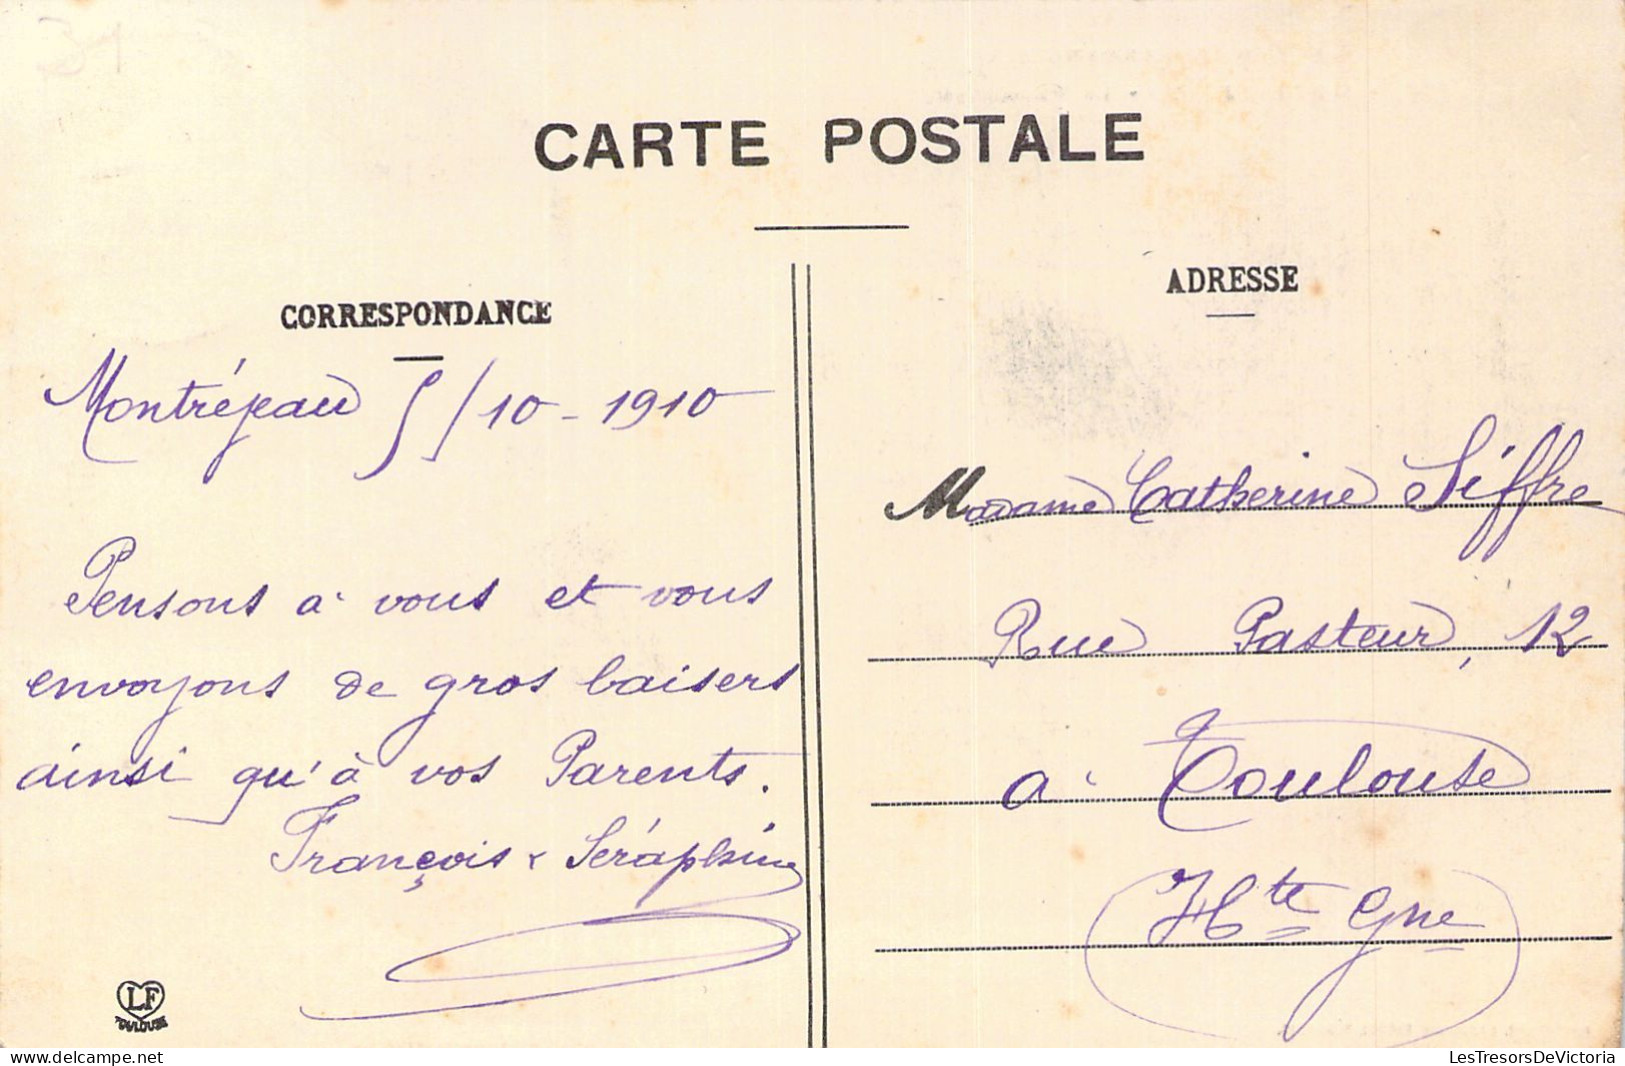 CARTE POSTALE
CORRESPONDANCE
Montréjeau 5/10-1910
Pensons à vous et vous
envoyons de gros baisers
ainsi qu'à vos Parents.
François & Séraphine
LF
TOULOUSE
ADRESSE
Madame Catherine Siffre
Rue Pasteur, 12
à Toulouse
Hte Gne
LesTresorsDeVictoria